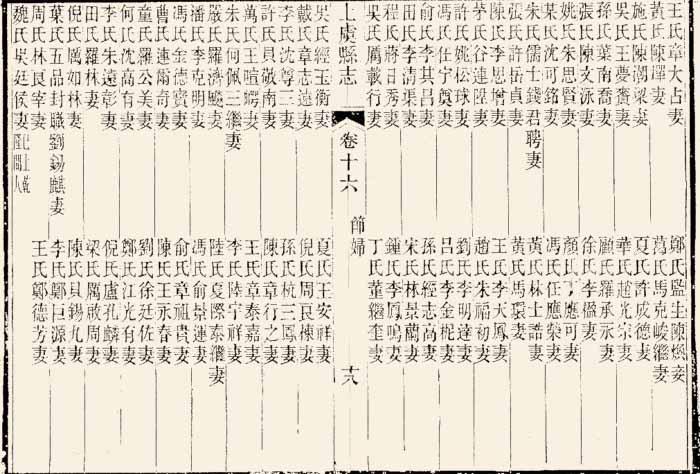 王氏章大占妻　鄭氏監生陳燠妾
黃氏陳墿妻　葛氏馬克峻繼妻
施氏陳潮梁妻　夏氏許成德妻
吳氏王夢賚妻　華氏趙光宗妻
孫氏葉南喬妻　顧氏羅承永妻
張氏陳文泳妻　徐氏李妻
姚氏朱思賢妻　顏氏丁應可妻
某氏沈可銘妻　馮氏任應榮妻
朱氏儒士錢君聘妻　黃氏林士誥妻
張氏許岳貞妻　黃氏馬環妻
陳氏李思增妻　王氏李天鳳妻
茅氏谷連陞妻　趙氏朱福初妻
許氏姚松球妻　劉氏李明達妻
馮氏任宇奠妻　呂氏李金妻
俞氏李其昌妻　孫氏經志高妻
田氏李清渠妻　宋氏林景蘭妻
程氏蔣日秀妻　鍾氏李鳳鳴妻
吳氏厲載行妻　丁氏董繼奎妻
上虞縣志　卷十六　節婦　十八
吳氏經玉衡妻　夏氏王安祥妻
戴氏章志遠妻　倪氏周艮棟妻
李氏沈尊三妻　孫氏杭三鳳妻
許氏貝敬南妻　陳氏章行之妻
萬氏王暄妻　王氏章泰嘉妻
朱氏何佩三繼妻　李氏陸宇祥妻
嚴氏羅濟颺妻　陸氏夏際泰繼妻
潘氏李克明妻　馮氏俞景運妻
馮氏金德寶妻　俞氏章祖貴妻
曹氏連爾奇妻　陳氏王永春妻
童氏羅公美妻　劉氏徐廷佐妻
何氏沈高有妻　鄭氏江光有妻
李氏朱遠彰妻　倪氏盧孔麟妻
田氏羅林妻　梁氏厲啟周妻
倪氏厲如林妻　陳氏貝錫九妻
葉氏五品封職劉錫麒妻　李氏鄭巨源妻
周氏林艮宰妻　王氏鄭德芳妻
魏氏吳廷侯妻已上乾隆間人